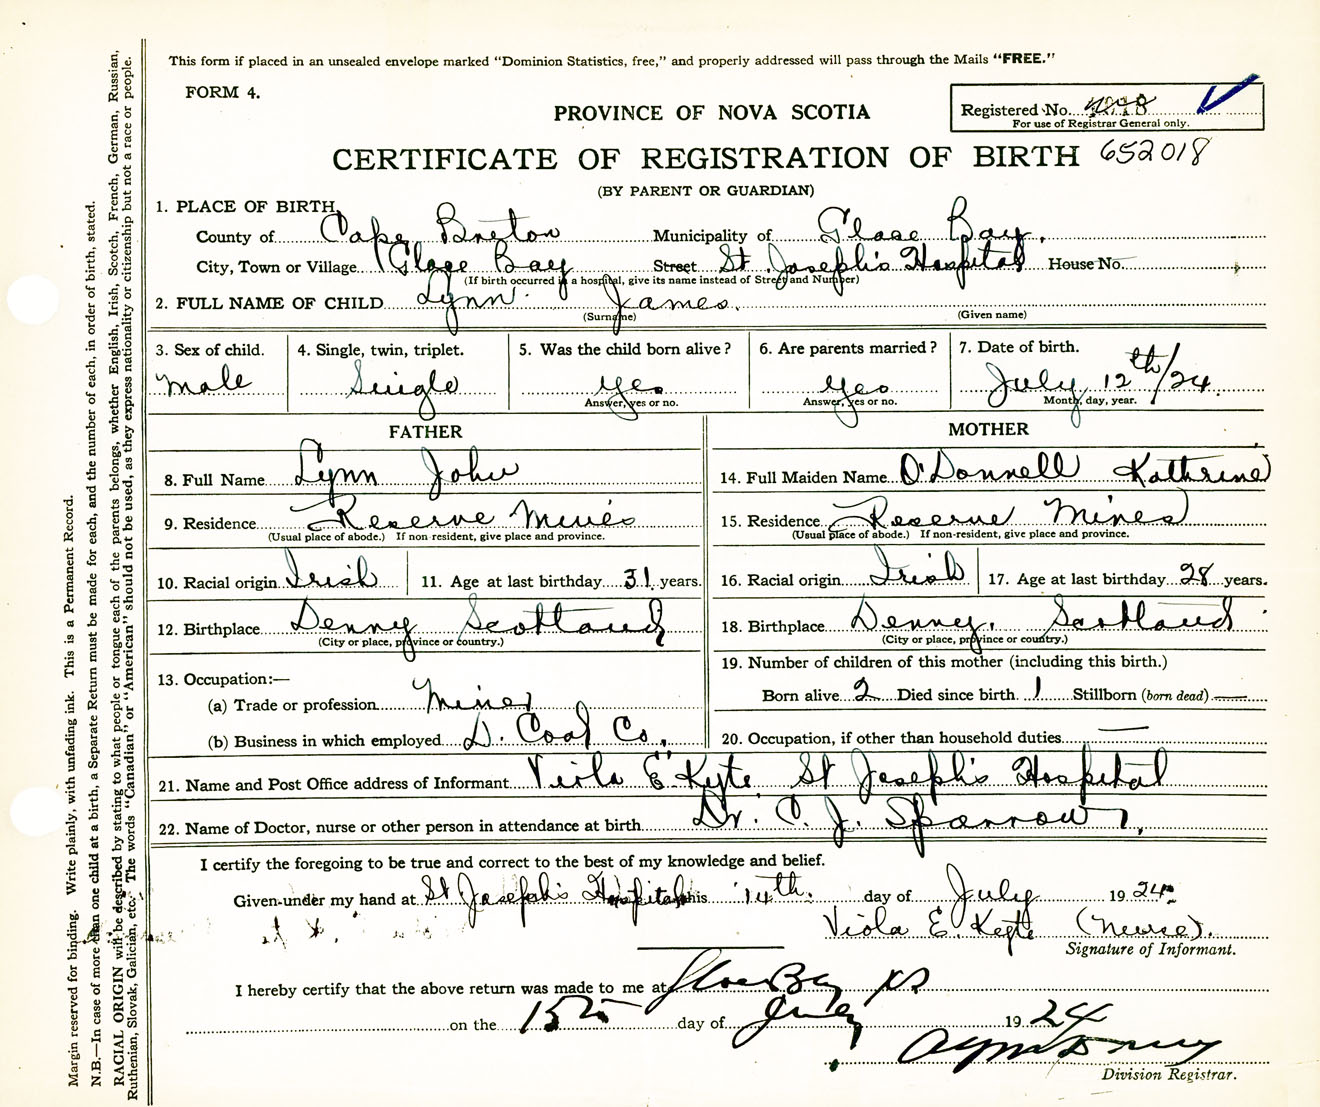 This form if placed in an unsealed envelope marked "Dominion Statistics, free," and properly addressed will pass through the Mails "FREE."
FORM 4.
PROVINCE OF NOVA SCOTIA
Registered No.
For use of Registrar General only.
CERTIFICATE OF REGISTRATION OF BIRTH 652018
(BY PARENT OR GUARDIAN)
1. PLACE OF BIRTH,
County of Cape Breton Municipality of Glace Bay.
City, Town or Village Glace Bay Street St Joseph's Hospital House No.
(If birth occurred in a hospital, give its name instead of Street and Number)
2. FULL NAME OF CHILD Lynn James.
(Surname) (Given name)
3. Sex of child. 4. Single, twin, triplet. 5. Was the child born alive? 6. Are parents married? 7. Date of birth.
Male Single Yes Yes July 12th/24
Answer, yes or no. Answer, yes or no. Month, day, year.
FATHER MOTHER
8. Full Name Lynn John 14. Full Maiden Name O'Donnell Kathrine
9. Residence Reserve Mines 15. Residence Reserve Mines
(Usual place of abode.) If non-resident, give place and province. (Usual place of abode.) If non-resident, give place and province.
10. Racial origin Irish 11. Age at last birthday 31 years. 16. Racial origin Irish 17. Age at last birthday 28 years.
12. Birthplace Denny Scotland 18. Birthplace Denny, Scotland
(City or place, province or country.) (City or place, province or country.)
13. Occupation:— 19. Number of children of this mother (including this birth.)
(a) Trade or profession Miner Born alive 2 Died since birth 1 Stillborn (born dead) —
(b) Business in which employed D. Coal Co. 20. Occupation, if other than household duties —
21. Name and Post Office address of Informant Viola E. Kyte St Joseph's Hospital
22. Name of Doctor, nurse or other person in attendance at birth Dr. C. J. Sparrow,
I certify the foregoing to be true and correct to the best of my knowledge and belief.
Given under my hand at St Joseph's Hospital this 14th day of July 1924
Viola E. Kyte (Nurse).
Signature of Informant.
I hereby certify that the above return was made to me at Glace Bay NS
on the 15th day of July 1924
Division Registrar.
Margin reserved for binding. Write plainly, with unfading ink. This is a Permanent Record.
N.B.—In case of more than one child at a birth, a Separate Return must be made for each, and the number of each, in order of birth, stated.
RACIAL ORIGIN will be described by stating to what people or tongue each of the parents belongs, whether English, Irish, Scotch, French, German, Russian,
Ruthenian, Slovak, Galician, etc. The words "Canadian" or "American" should not be used, as they express nationality or citizenship but not a race or people.